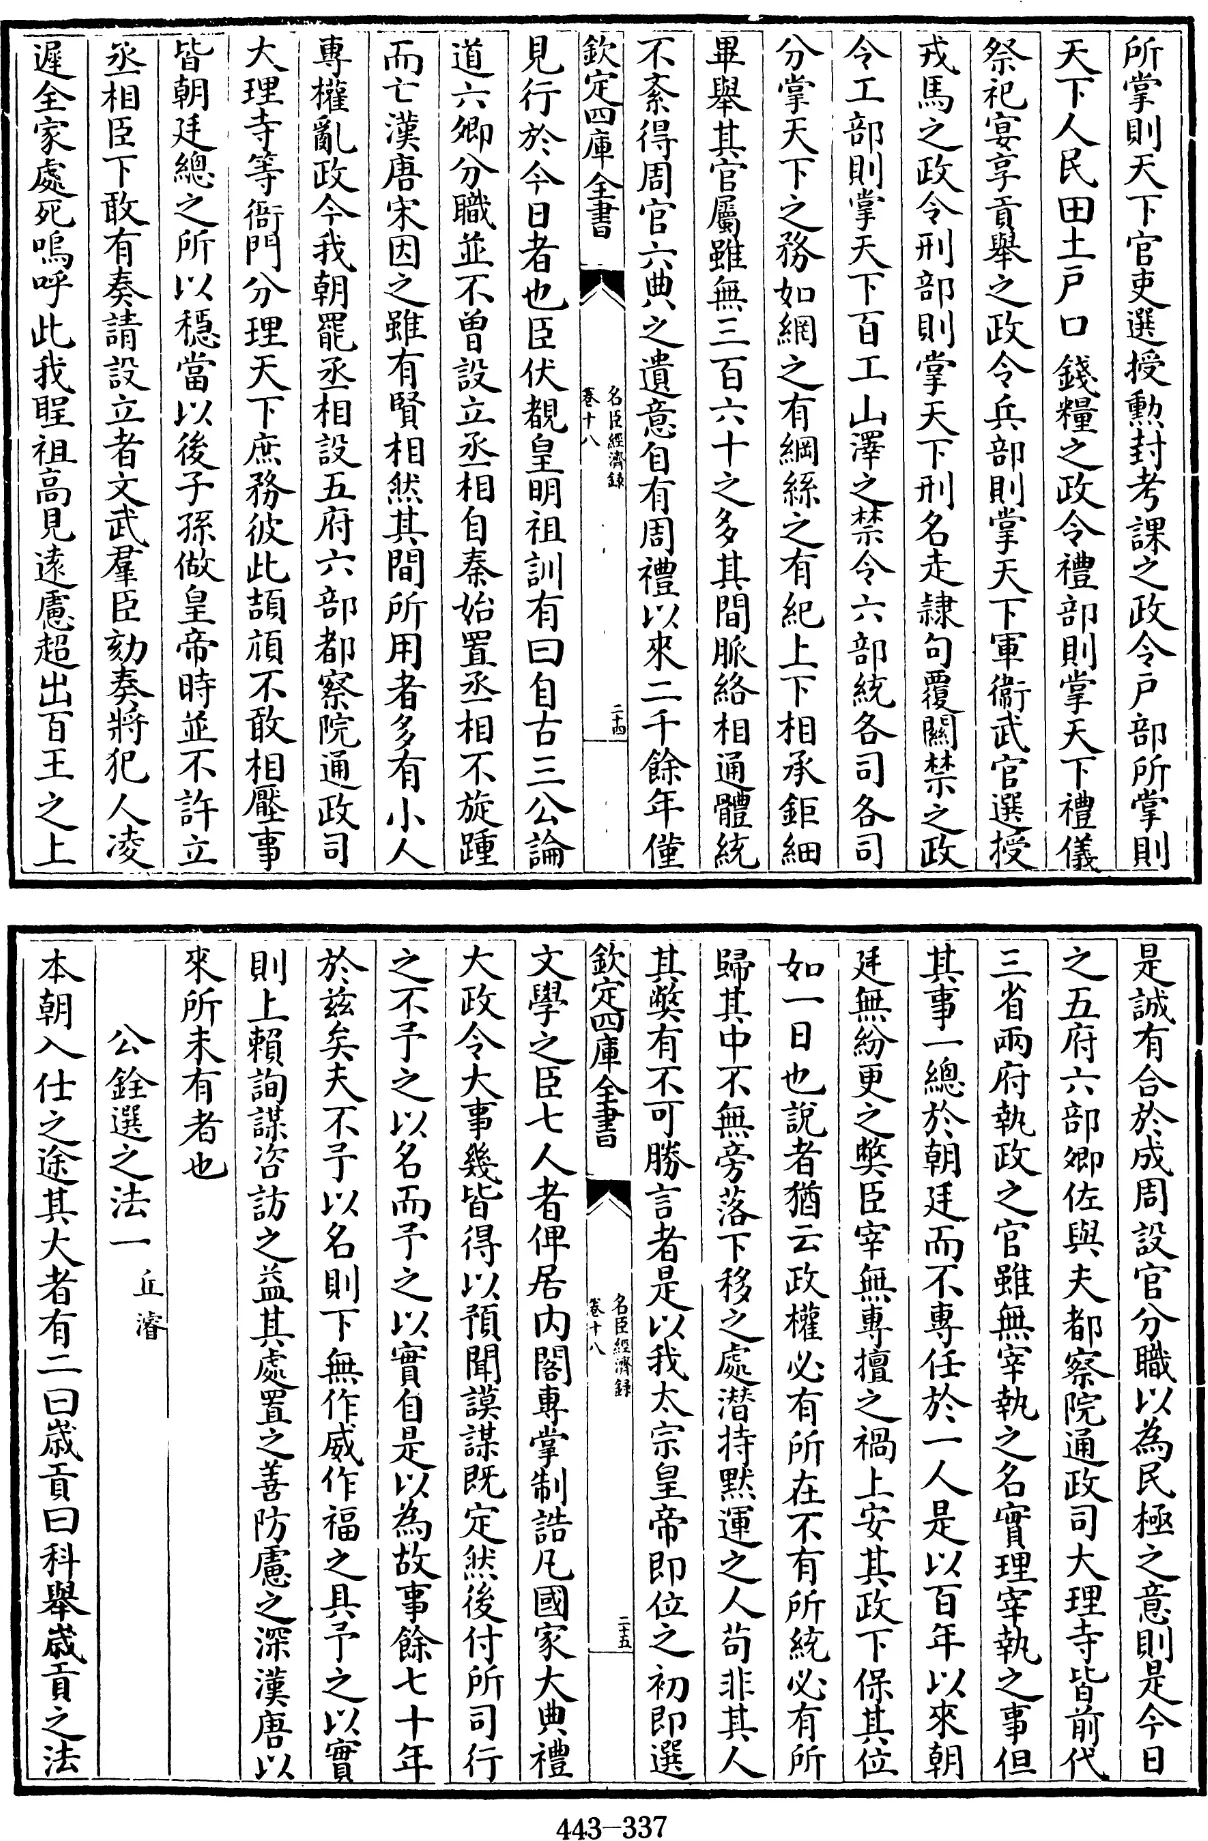 所掌則天下官吏選授勲封考課之政令戸部所掌則
天下人民田土戸口錢糧之政令禮部則掌天下禮儀
祭祀宴享貢舉之政令兵部則掌天下軍衞武官選授
戎馬之政令刑部則掌天下刑名走隸句覆關禁之政
令工部則掌天下百工山澤之禁令六部統各司各司
分掌天下之務如網之有綱絲之有紀上下相承鉅細
畢舉其官屬雖無三百六十之多其間脈絡相通體統
不紊得周官六典之遺意自有周禮以來二千餘年僅
欽定四庫全書
名臣經濟録
卷十八
二十四
見行於今日者也臣伏覩皇明祖訓有曰自古三公論
道六卿分職並不曾設立丞相自秦始置丞相不旋踵
而亡漢唐宋因之雖有賢相然其間所用者多有小人
專權亂政今我朝罷丞相設五府六部都察院通政司
大理寺等衙門分理天下庶務彼此頡頏不敢相壓事
皆朝廷總之所以穩當以後子孫做皇帝時並不許立
丞相臣下敢有奏請設立者文武羣臣劾奏將犯人凌
遲全家處死嗚呼此我聖祖高見遠慮超出百王之上
是誠有合於成周設官分職以為民極之意則是今日
之五府六部卿佐與夫都察院通政司大理寺皆前代
三省兩府執政之官雖無宰執之名實理宰執之事但
其事一總於朝廷而不專任於一人是以百年以來朝
廷無紛更之弊臣宰無專擅之禍上安其政下保其位
如一日也説者猶云政權必有所在不有所統必有所
歸其中不無旁落下移之處潜持黙運之人茍非其人
其弊有不可勝言者是以我太宗皇帝即位之初即選
欽定四庫全書
名臣經濟録
卷十八
二十五
文學之臣七人者俾居内閣專掌制誥凡國家大典禮
大政令大事幾皆得以預聞謨謀既定然後付所司行
之不予之以名而予之以實自是以為故事餘七十年
於兹矣夫不予以名則下無作威作福之具予之以實
則上賴詢謀咨訪之益其處置之善防慮之深漢唐以
來所未有者也
公銓選之法一 丘濬
本朝入仕之途其大者有二曰歳貢曰科舉歳貢之法
443-337